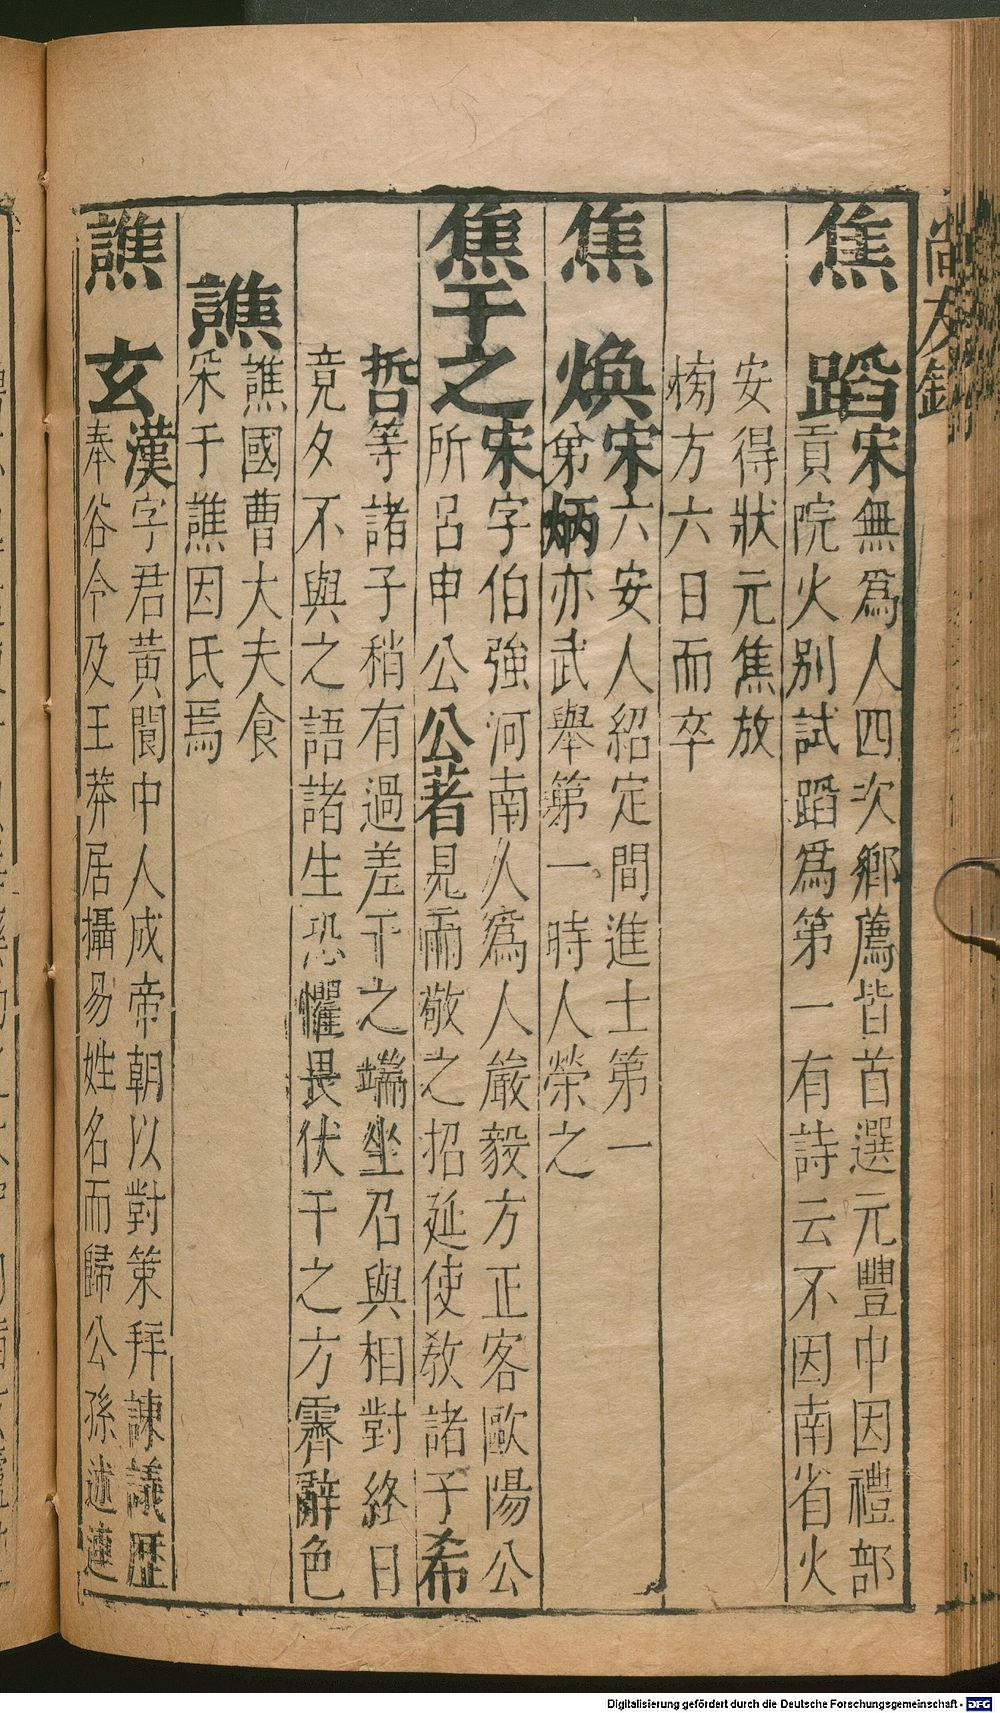 尚友錄
焦蹈宋無爲人四次鄉薦皆首選元豐中因禮部
貢院火別試蹈爲第一有詩云不因南省火
安得狀元焦放
榜方六日而卒
焦煥宋六安人紹定間進士第一
弟炳亦武舉第一時人榮之
焦千之宋字伯強河南人爲人嚴毅方正客歐陽公
所呂申公公著見而敬之招延使敎諸子希
哲等諸子稍有過差千之端坐召與相對終日
竟夕不與之語諸生恐懼畏伏千之方霽辭色
譙譙國曹大夫食
采于譙因氏焉
譙玄漢字君黃閬中人成帝朝以對策拜諫議歷
奉谷令及王莽居攝易姓名而歸公孫述連
Digitalisierung gefördert durch die Deutsche Forschungsgemeinschaft - DFG